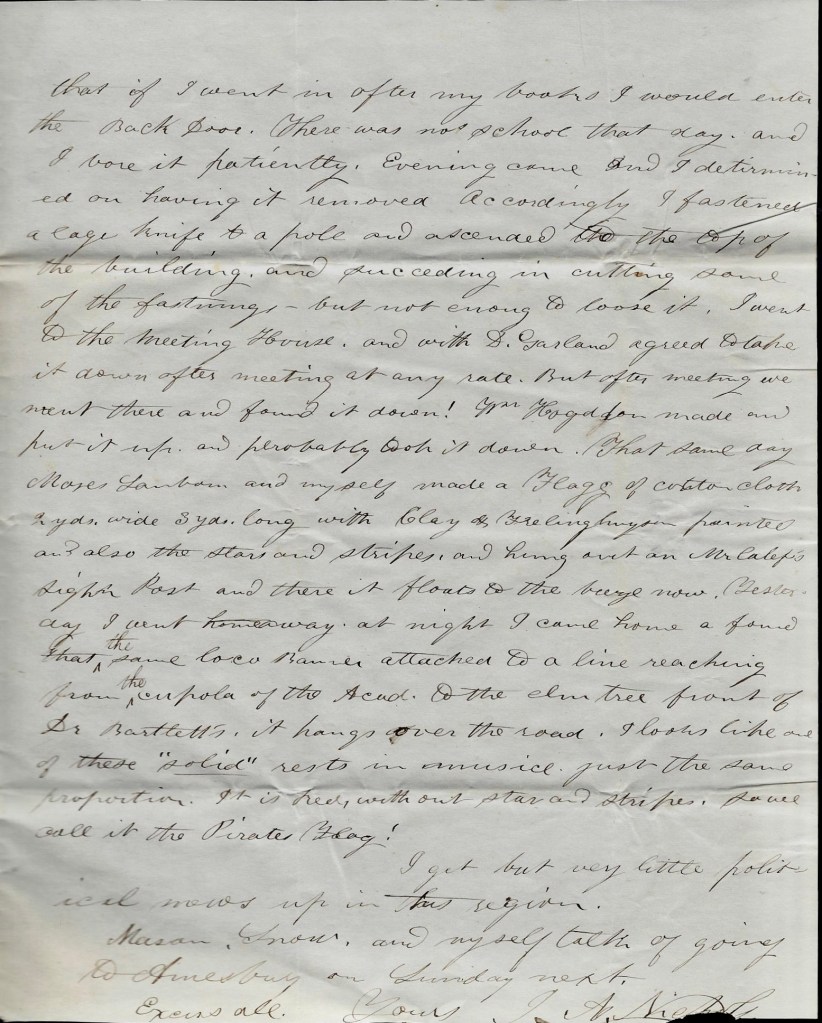 that if I went in after my books I would enter
the Back Door. There was not school that day. and
I bore it patiently. Evening came and I determin-
ed on having it removed Accordingly I fastened
a lage knife to a pole and ascended to the top of
the building. and succeding in cutting some
of the fastnings - but not enoug to loose it. I went
to the Meeting House. and with D. Garland agreed to take
it down after meeting at any rate. But after meeting we
went there and found it down! Wm Hogddon made and
put it up. and perobably took it down. That same day
Moses Sanborn and myself made a Flagg of cotton cloth
2 yds. wide 3 yds. long with Clay & Frelinghuysen painted
and also the stars and stripes. and hung out on Mr Calef's
sigh'n Post and there it floats to the breeze now. Yester-
day I went home away. at night I came home a found
that the same loco Banner attached to a line reaching
from the cupola of the Acad. to the elm tree front of
Dr Bartlett's. it hangs over the road. I looks like one
of these "solid" rests in musice. just the same
proportion. It is red, without star and stripes. some
call it the Pirates Flag!
I get but very little polit-
ical news up in this region.
Mason, Snow. and myself talk of going
to Amesbury on Sunday next.
Excus all. Yours J. A. Nichols